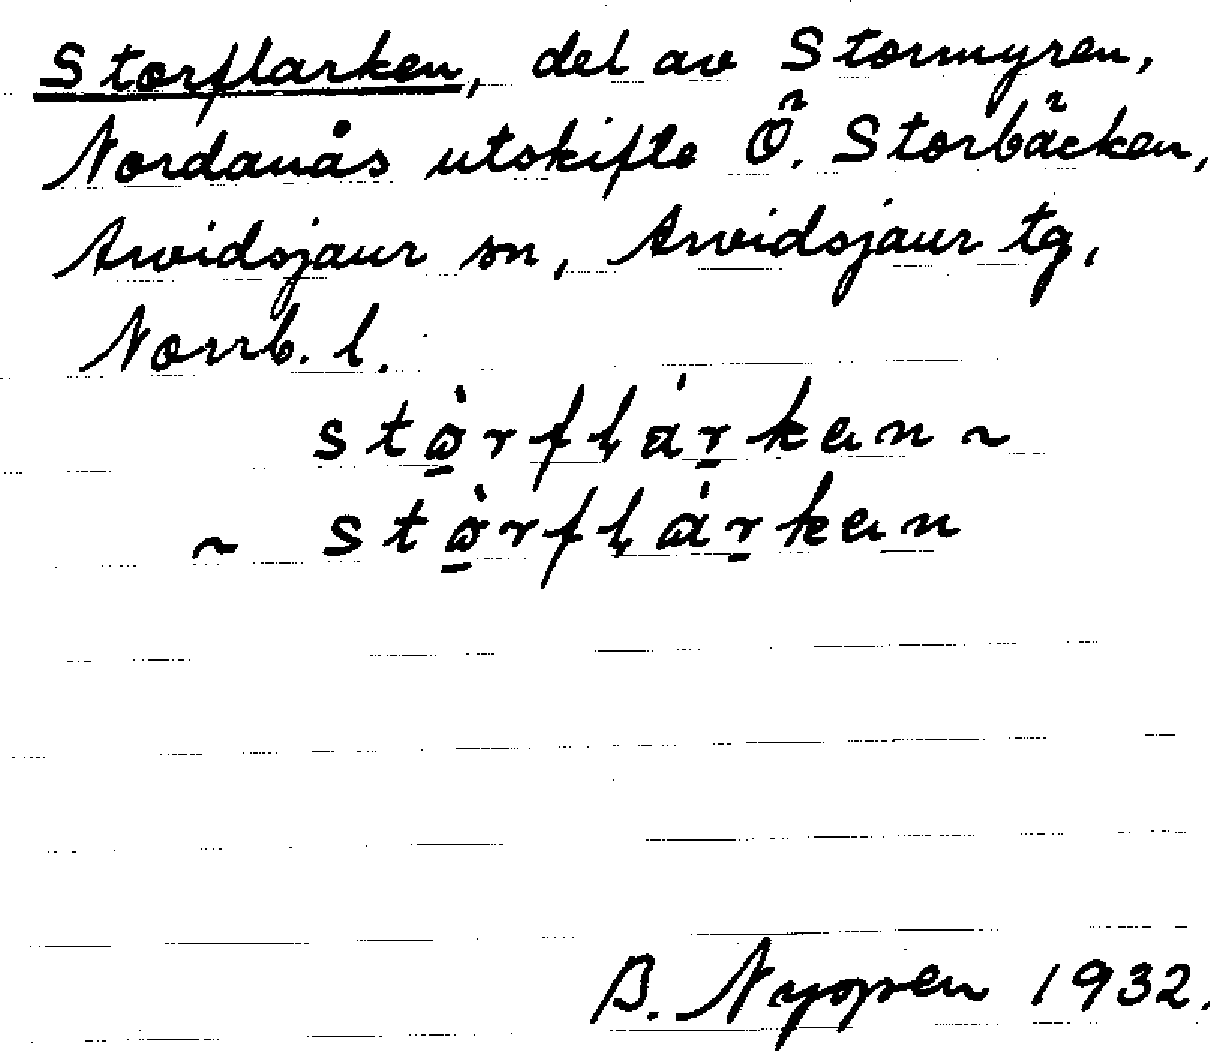 Storflarken, del av Stormyren,
Nordanås utskifte Ö. Storbäcken,
Arvidsjaur sn, Arvidsjaur tg,
Norrb. l.
B. Nyppen 1932.